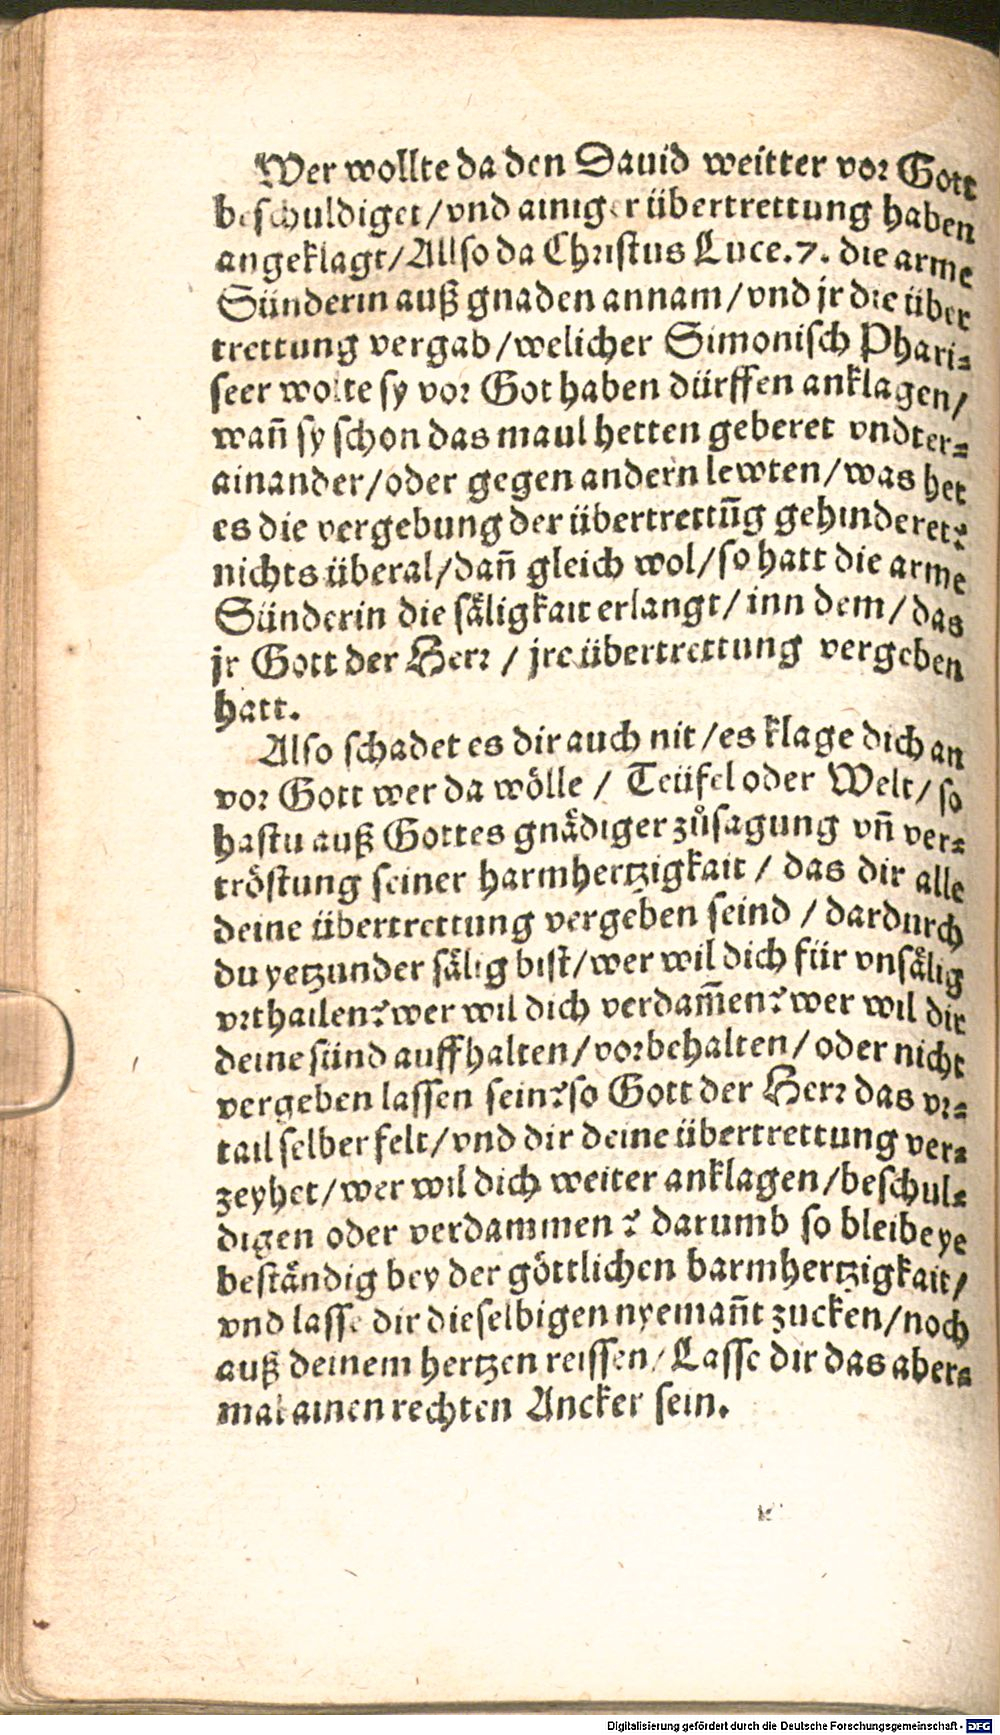 Wer wollte da den Dauid weitter vor Gott
beschuldiget/vnd ainiger übertrettung haben
angeklagt/Allso da Christus Luce.7. die arme
Sünderin auß gnaden annam/vnd jr die über
trettung vergab/welicher Simonisch Phari-
seer wolte sy vor Got haben dürffen anklagen/
wañ sy schon das maul hetten geberet vndter-
ainander/oder gegen andern lewten/was het
es die vergebung der übertrettũg gehinderet?
nichts überal/dañ gleich wol/so hatt die arme
Sünderin die säligkait erlangt/inn dem/das
jr Gott der Herr/jre übertrettung vergeben
hatt.
Also schadet es dir auch nit/es klage dich an
vor Gott wer da wölle/Teüfel oder Welt/so
hastu auß Gottes gnädiger zůsagung vñ ver-
tröstung seiner harmhertzigkait/das dir alle
deine übertrettung vergeben seind/dardurch
du yetzunder sälig bist/wer wil dich für vnsälig
vrthailen?wer wil dich verdam̃en?wer wil dir
deine sünd auffhalten/vorbehalten/oder nicht
vergeben lassen sein?so Gott der Herr das vr-
tail selber felt/vnd dir deine übertrettung ver-
zeyhet/wer wil dich weiter anklagen/beschul-
digen oder verdammen? darumb so bleibe ye
beständig bey der göttlichen barmhertzigkait/
vnd lasse dir dieselbigen nyemañt zucken/noch
auß deinem hertzen reissen/Lasse dir das aber-
mal ainen rechten Ancker sein.
Digitalisierung gefördert durch die Deutsche Forschungsgemeinschaft - DFG